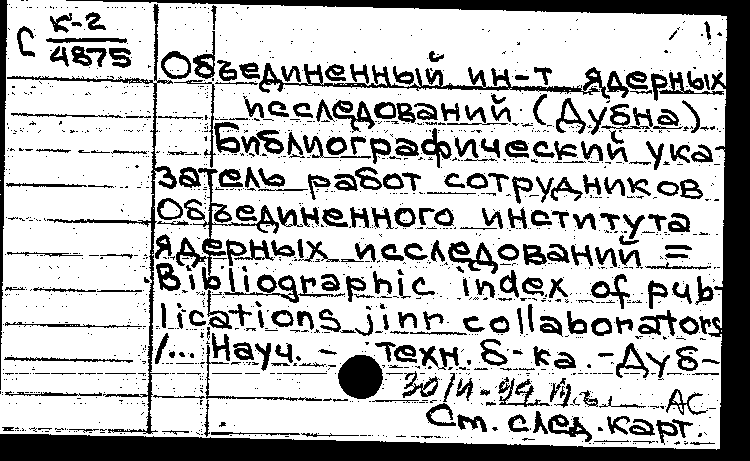 С К-2
4875
1.
Объединенный ин-т ядерных
исследований (Дубна)
Библиографический ука-
затель работ сотрудников
Объединенного института
ядерных исследований =
Bibliographic index of pub-
lications jinr collaborators
/... Науч. - техн. б-ка. -Дуб-
АС
См. след. карт.